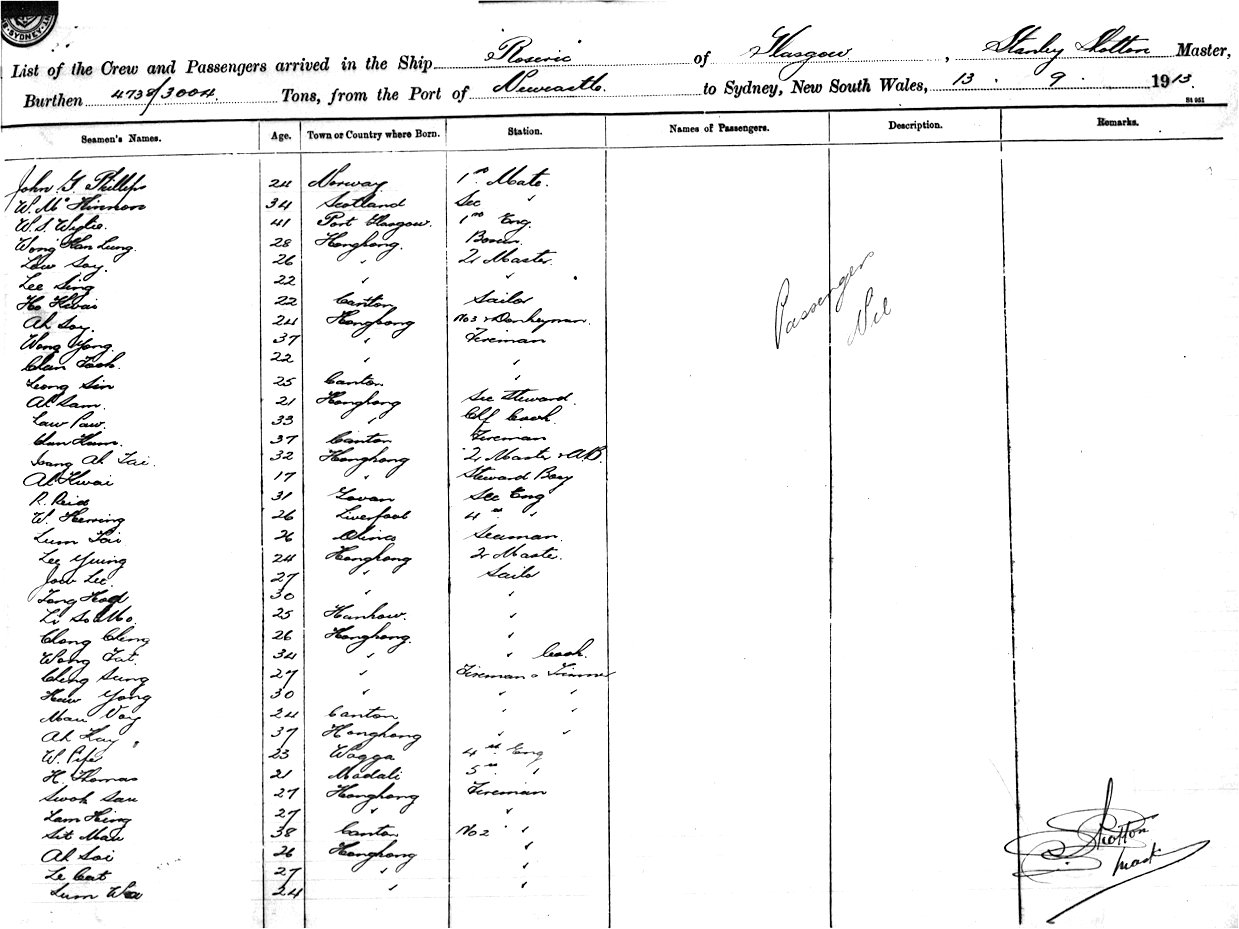 SYDNEY
List of the Crew and Passengers arrived in the Ship Roseric of Glasgow, Stanley Shotton Master,
Burthen 4739/3004 Tons, from the Port of Newcastle to Sydney, New South Wales, 13 . 9 . 1913.
St 951
Seamen's Names. Age. Town or Country where Born. Station. Names of Passengers. Description. Remarks.
John G. Phillips 24 Norway 1st Mate.
W. McKinnon 34 Scotland Sec "
W. S. Wylie. 41 Port Glasgow. 1st Eng
Wong Kan Lung. 28 Hongkong. Bosun
Low Soy. 26 " 2r Master.
Lee Sing 22 " " .
Ho Kwai 22 Canton Sailor
Ah Soy. 24 Hongkong No3 & Donkeyman.
Wong Yong 37 " Fireman
Chan Fook. 22 " "
Leong Sin 25 Canton "
Ah Sam. 21 Hongkong Sec Steward.
Law Paw. 33 " Clf Cook.
Chan Kum. 37 Canton Fireman
Ah Tai. 32 Hongkong 2r Master & AB.
Ah Kwai 17 " Steward Boy
R. Reid 31 Govan Sec Eng
W. Herring 26 Liverpool 4th "
Lum Tai 26 China Seaman.
Lee Yuing 24 Hongkong 2r Master.
Jow Lee. 27 " Sailor
Tong 30 " "
Li So Mo. 25 Hankow. "
Chong Cheng 26 Hongkong. "
Wong Fat. 34 " " Cook.
Cheng Sung 27 " Fireman & Trimmer
Haw Yong 30 " " "
Mau Voy 24 Canton " "
Ah Kay 37 Hongkong " "
W. Pipe 23 Wagga 4th Eng
H. Thomas 21 5th "
Swok Sau 27 Hongkong Fireman
Lam Hing 27 " "
Sit Mau 38 Canton No2 "
Ah Soi 26 Hongkong "
Le Cat 27 " "
Lum Wa 24 " "
Passenger
Nil
Shotton
Mast